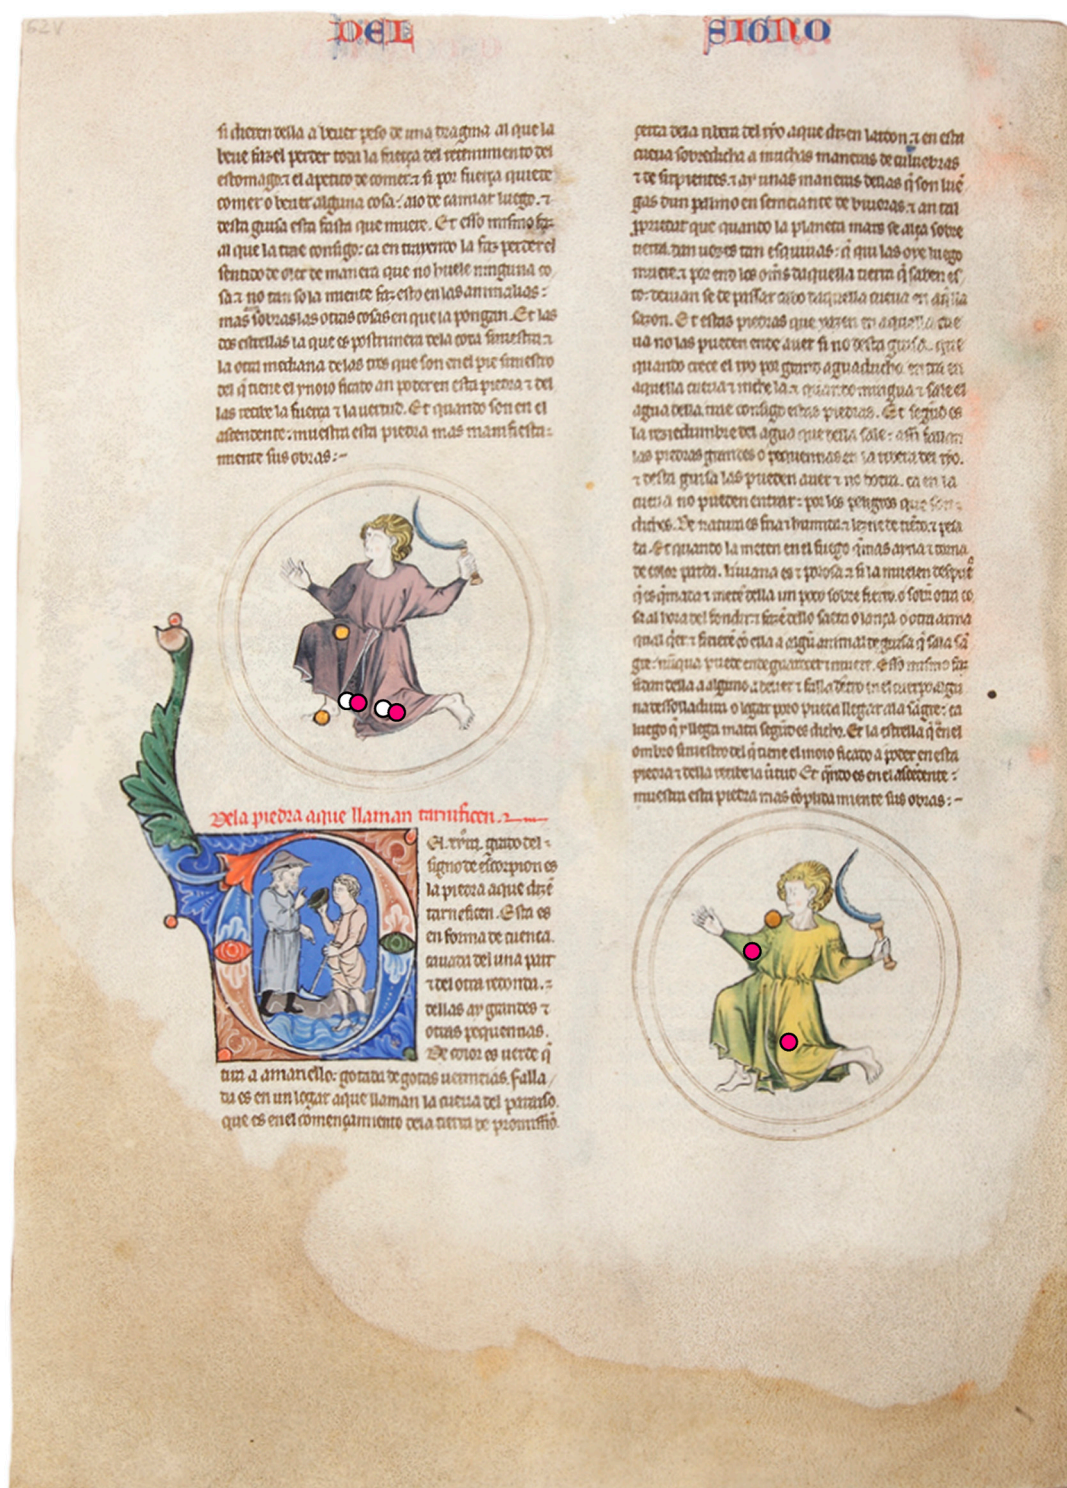 62v
DEL SIGNO
si dieren della a beuer peso de una dragma al que la
beue faz el perder toda la fuerça del retenimiento del
estomago. ⁊ el apetito de comer. ⁊ si por fuerça quiere
comer o beuer alguna cosa. a lo de camiar luego. ⁊
desta guisa esta fasta que muere. Et esso mismo faz
al que la trae consigo. ca en trayendo la faz perder el
sentido de oler de manera que no huele ninguna co
sa. ⁊ no tan sola miente faz esto en las animalias:
mas sobre las otras cosas en que la pongan. Et las
dos estrellas la que es postrimera dela cota siniestra. ⁊
la otra mediana de las tres que son en el pie siniestro
del q̃ tiene el ynoio ficado an poder en esta piedra ⁊ del
las recibe la fuerça ⁊ la uertud. Et quando son en el
ascendente. muestra esta piedra mas manifiesta:
miente sus obras:~
Dela piedra aque llaman tarnificen.
signo de escorpion es
la piedra aque dizẽ
tarneficen. Esta es
en forma de cuenca.
cauada del una part
⁊ del otra redonda.
dellas ay grandes ⁊
otras pequennas.
De color es uerde q̃
tira a amariello. gotada de gotas uermeias. Falla/
da es en un logar aque llaman la cueua del parayso.
que es en el començamiento dela tierra de promissiõ.
çerca dela ribera del ryo aque dizen. ⁊ en esta
cueua sobredicha a muchas maneras de culuebras
⁊ de serpientes. ⁊ ay unas maneras dellas q̃ son luẽ
gas dun palmo en semeiante de biuoras. ⁊ an tal
propriedat que quando la planeta mars se alça sobre
tierra. dan uozes tan esquiuas. q̃ qui las oye luego
muere. ⁊ por end los oms daquella tierra q̃ saben es
to. desuian se de passar cabo daquella cueua en aq̃lla
sazon. Et estas piedras que yazen en aquella cue
ua no las pueden ende auer si no desta guisa. que
quando crece el ryo por grand aguaducho entra en
aquella cueua ⁊ inche la. ⁊ quando mingua ⁊ sale el
agua della. trae consigo estas piedras. Et segund es
la reziedumbre del agua que della sale. assi fallan
las piedras grandes o pequennas en la ribera del ryo.
⁊ desta guisa las pueden auer ⁊ no dotra. ca en la
cueua no pueden entrar. por los peligros que son
dichos. De natura es fria ⁊ humida. ⁊ pesa
da. Et quando la meten en el fuego q̃mas ayna ⁊ torna
de color parda. liuiana es ⁊ porosa. ⁊ si la muelen despues
q̃ es q̃mada ⁊ metẽ della un poco sobre fierro. o sobr̃ otra co
sa al hora del fondir. ⁊ fazẽ dello saeta o lança o otra arma
qual q̃er. ⁊ firierẽ cõ ella a algũ animal de guisa q̃ sala sã
gre. nũqua puede ende guarecer ⁊ muere. Esso mismo faz
si dan della a alguno a beuer ⁊ falla dẽtro en el cuerpo algu
na dessolladura o logar poro pueda llegar ala sãgre. ca
luego q̃ y llega mata segũd es dicho. Et la estrella q̃ en el
ombro siniestro del q̃ tiene el inoio ficado a poder en esta
piedra ⁊ della recibe la u̇tud. Et q̃ndo es en el ascẽdente:
muestra esta piedra mas cõplida miente sus obras:~